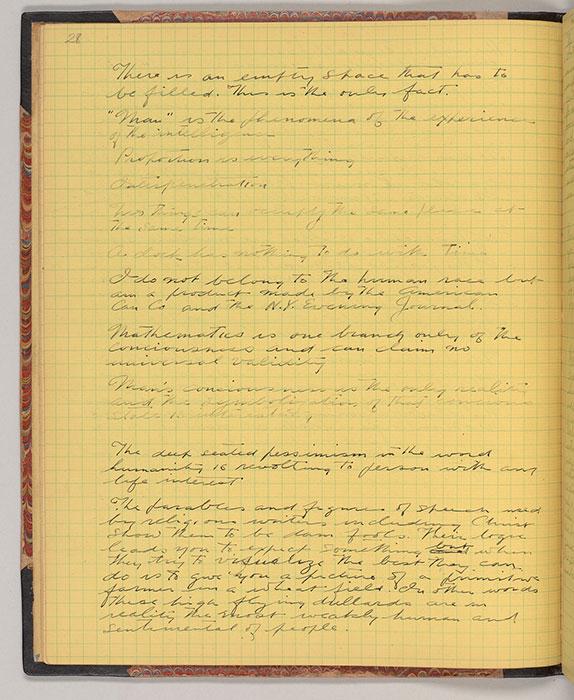 28
There is an empty space that has to
be filled. This is the only fact.
"Man" is the phenomena of the experience
of the intelligence
Proportion is everything
Interpenetration
Two things can occupy the same place at
the same time
A clock has nothing to do with Time
I do not belong to the human race but
am a product made by the American
Can Co and the N.Y. Evening Journal.
Mathematics is one branch only of the
conciousness and can claim no
universal validity
Man's conciousness is the only reality
and the symbolization of that concious
state is
The deep seated pessimism in the word
humanity is revolting to person with any
life interest
The parables and figures of speech used
by religious writers including Christ
show them to be dam fools. Their logic
leads you to expect something but when
they try to visualize the best they can
do is to give you a picture of a primitive
farmer in a wheat field. In other words
these high flying dullards are in
reality the most weakly human and
sentimental of people.